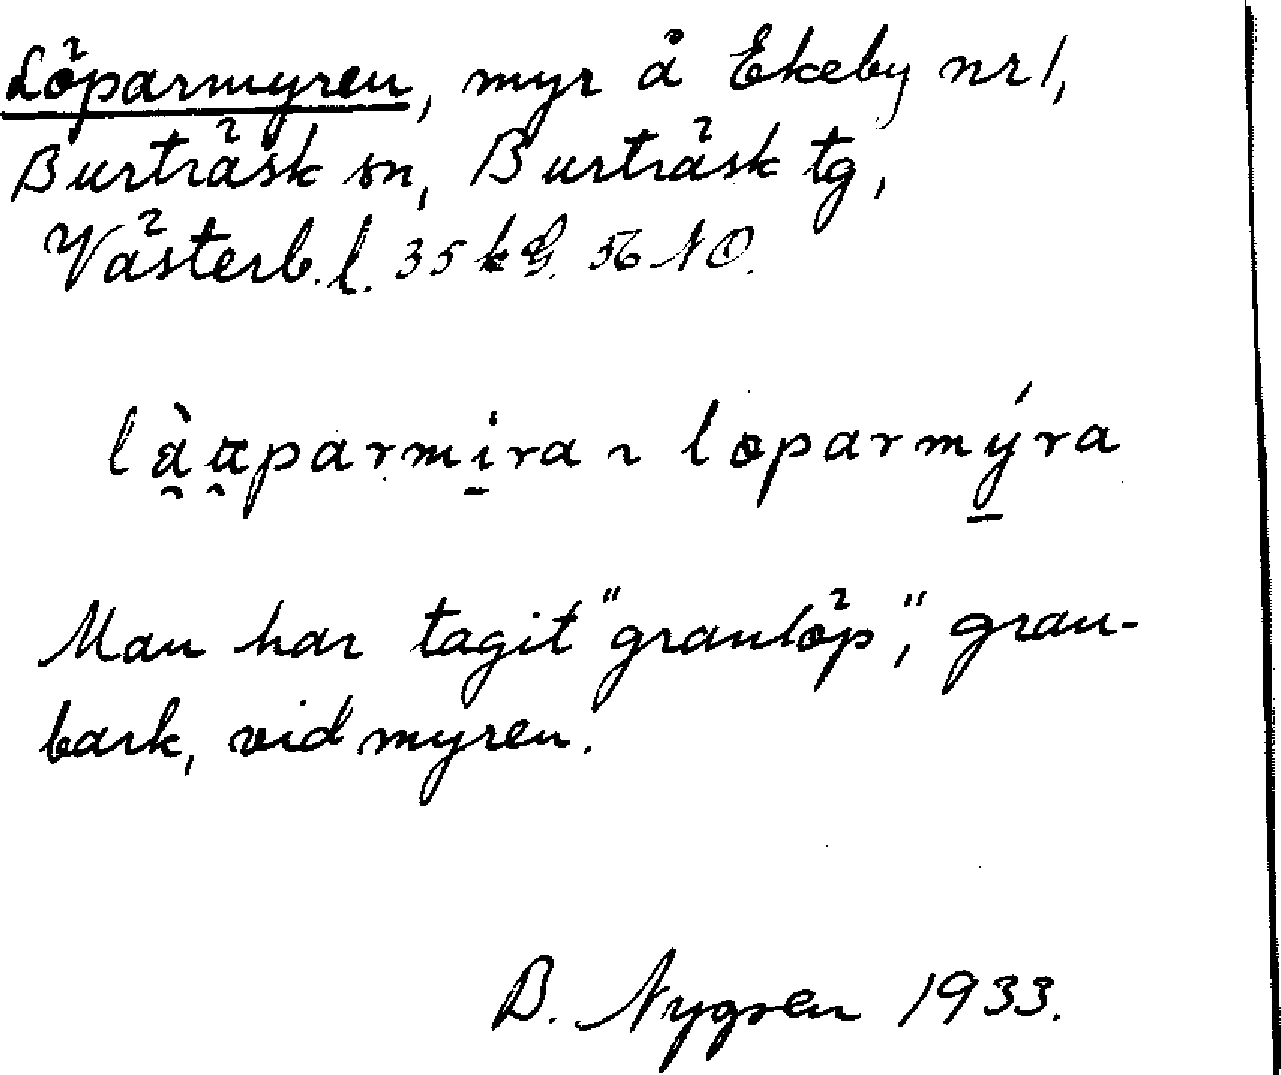 Löparmyren, myr å Ekeby nr 1,
Burträsk sn, Burträsk tg,
Västerb. l. 56 NO.
löparmýra
Man har tagit "granlöp", gran-
bark, vid myren.
B. Nygren 1933.